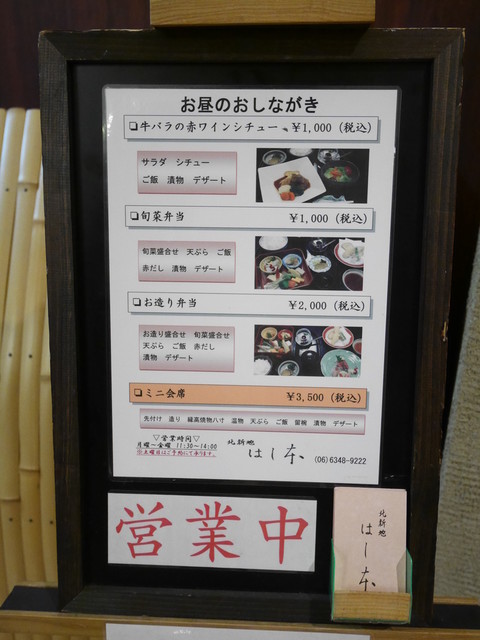 お昼のおしながき
❏牛バラの赤ワインシチュー ¥1,000 (税込)
サラダ シチュー
ご飯 漬物 デザート
❏旬菜弁当 ¥1,000 (税込)
旬菜盛合せ 天ぷら ご飯
赤だし 漬物 デザート
❏お造り弁当 ¥2,000 (税込)
お造り盛合せ 旬菜盛合せ
天ぷら ご飯 赤だし
漬物 デザート
❏ミニ会席 ¥3,500 (税込)
先付け 造り 焼物八寸 温物 天ぷら ご飯 留椀 漬物 デザート
▽営業時間▽
月曜～金曜 11:30～14:00
※土曜日はご予約にて承ります。
北新地
はし本
(06)6348-9222
営業中
北新地
はし本